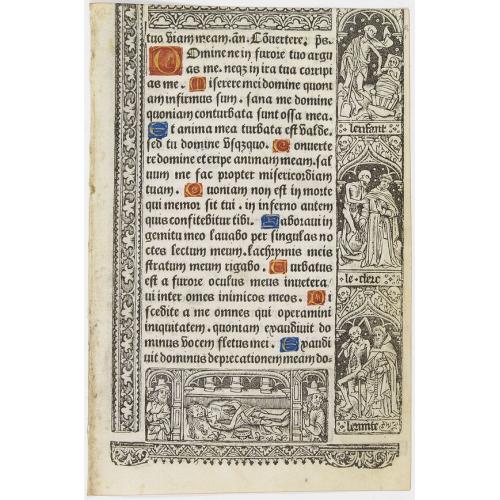 tuo viam meam. añ. Cōvertere. ps.
Domine ne in furore tuo argu
as me. neqz in ira tua corripi
as me. Miserere mei domine quoni
am infirmus sum. sana me domine
quoniam conturbata sunt ossa mea.
Et anima mea turbata est valde.
sed tu domine vsqzquo. Conuerte
re domine et eripe animam meam. sal
uum me fac propter misericordiam
tuam. Quoniam non est in morte
qui memor sit tui. in inferno autem
quis confitebitur tibi. Laboraui in
gemitu meo lauabo per singulas no
ctes lectum meum. lachrymis meis
stratum meum rigabo. Turbatus
est a furore oculus meus inuetera
ui inter omes inimicos meos. Di
scedite a me omnes qui operamini
iniquitatem. quoniam exaudiuit do
minus vocem fletus mei. Exaudi
uit dominus deprecationem meam do-
lenfant
le clerc
lermite